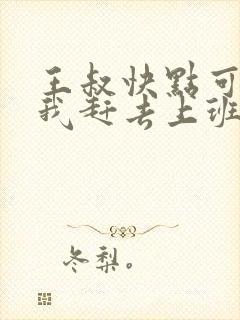 王叔快點可
我赶去上班
冬梨。